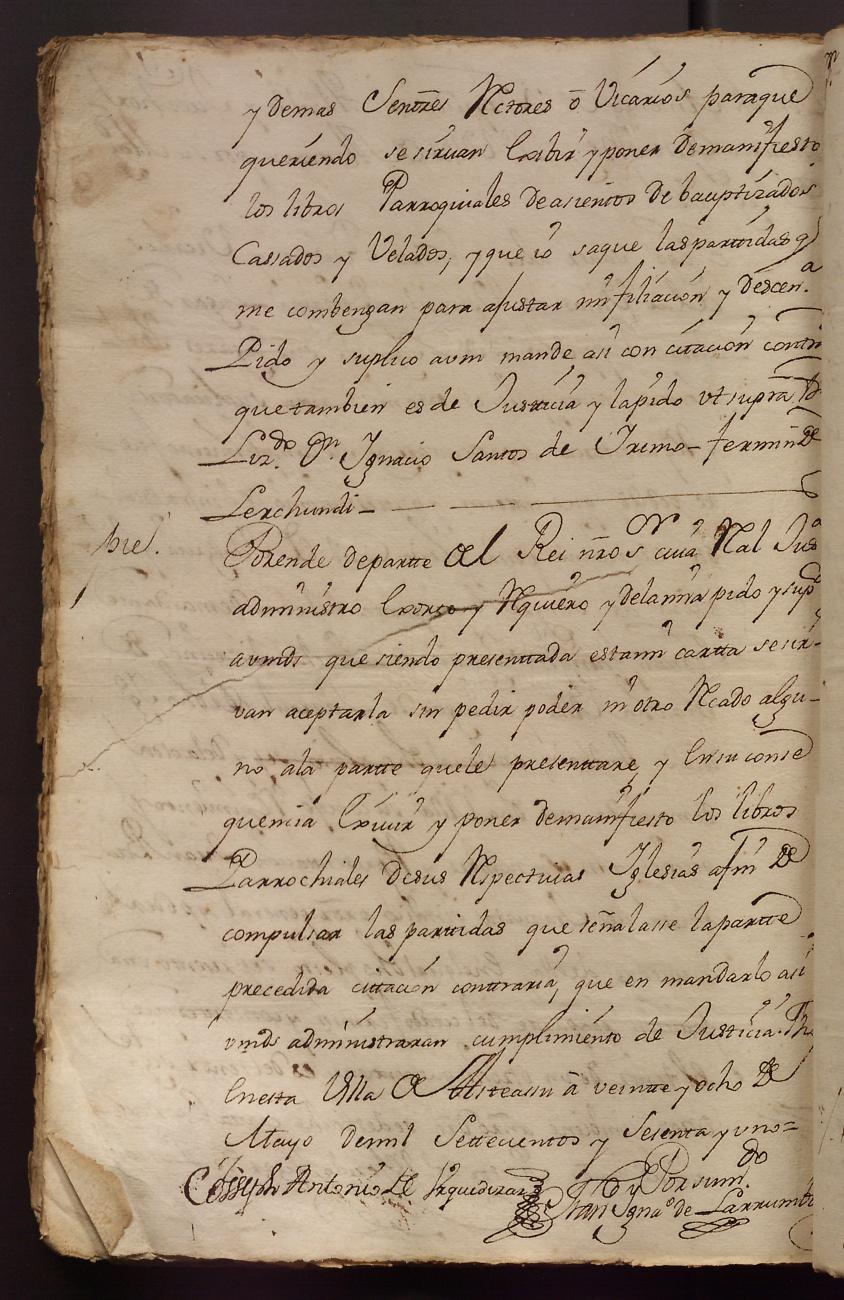 y demas Senores Rctores ō Vicarios paraque
queriendo se siruan Exibir y poner demanifiesto
los libros Parroquiales de asientos de bauptizados
Cassados y Velados, y que io saque las partidas q
me combengan para ajustar mi filiacion y Descen.a
Pido y suplico avm mande asi con citacion contra
que tambien es de Justicia y lapido vt supra
Liz.do Dn Ygnacio Santos de Irimo - fermin de
Lerchundi -
pie.
Porende departte del Rei nro sr cuia Ral Jusa
administro Exorto y Rquiero y delamia pido y supco
avmds que siendo presenttada esta mi cartta se sir-
van aceptarla sin pedir poder ni otro Rcado algu-
no ala partte quele presenttare, y En su conse
quencia Exivir y poner demanifiesto los libros
Parrochiales desus Rspectivas Yglesias afin de
compulsar las partidas que señalasse la partte
precedida cittacion conttraria, que en mandarlo asi
vmds administraran cumplimiento de Justicia. Fho
En esta Villa de Asteassu ā veintte y ocho de
Mayo demil Settecientos y Sesenta y uno=
Joseph Antonio de Yzquidizar Por su mdo
Juan Ygnao de Larrumbi